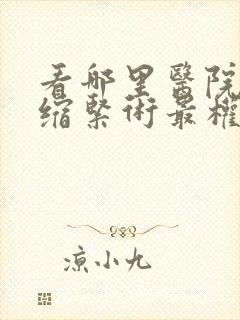 看哪里醫院
缩緊術最權
凉小九